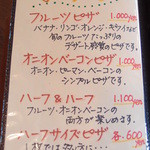 フルーツピザ 1,000
バナナ・リンゴ・オレンジ・キウイなど
旬のフルーツたっぷりの
デザート感覚のピザです。
オニオンベーコンピザ 1,000
オニオン・ピーマン・ベーコンの
シンプルピザです。
ハーフ & ハーフ 1,100
フルーツ・オニオンベーコンの
両方が楽しめます。
ハーフサイズピザ 各600